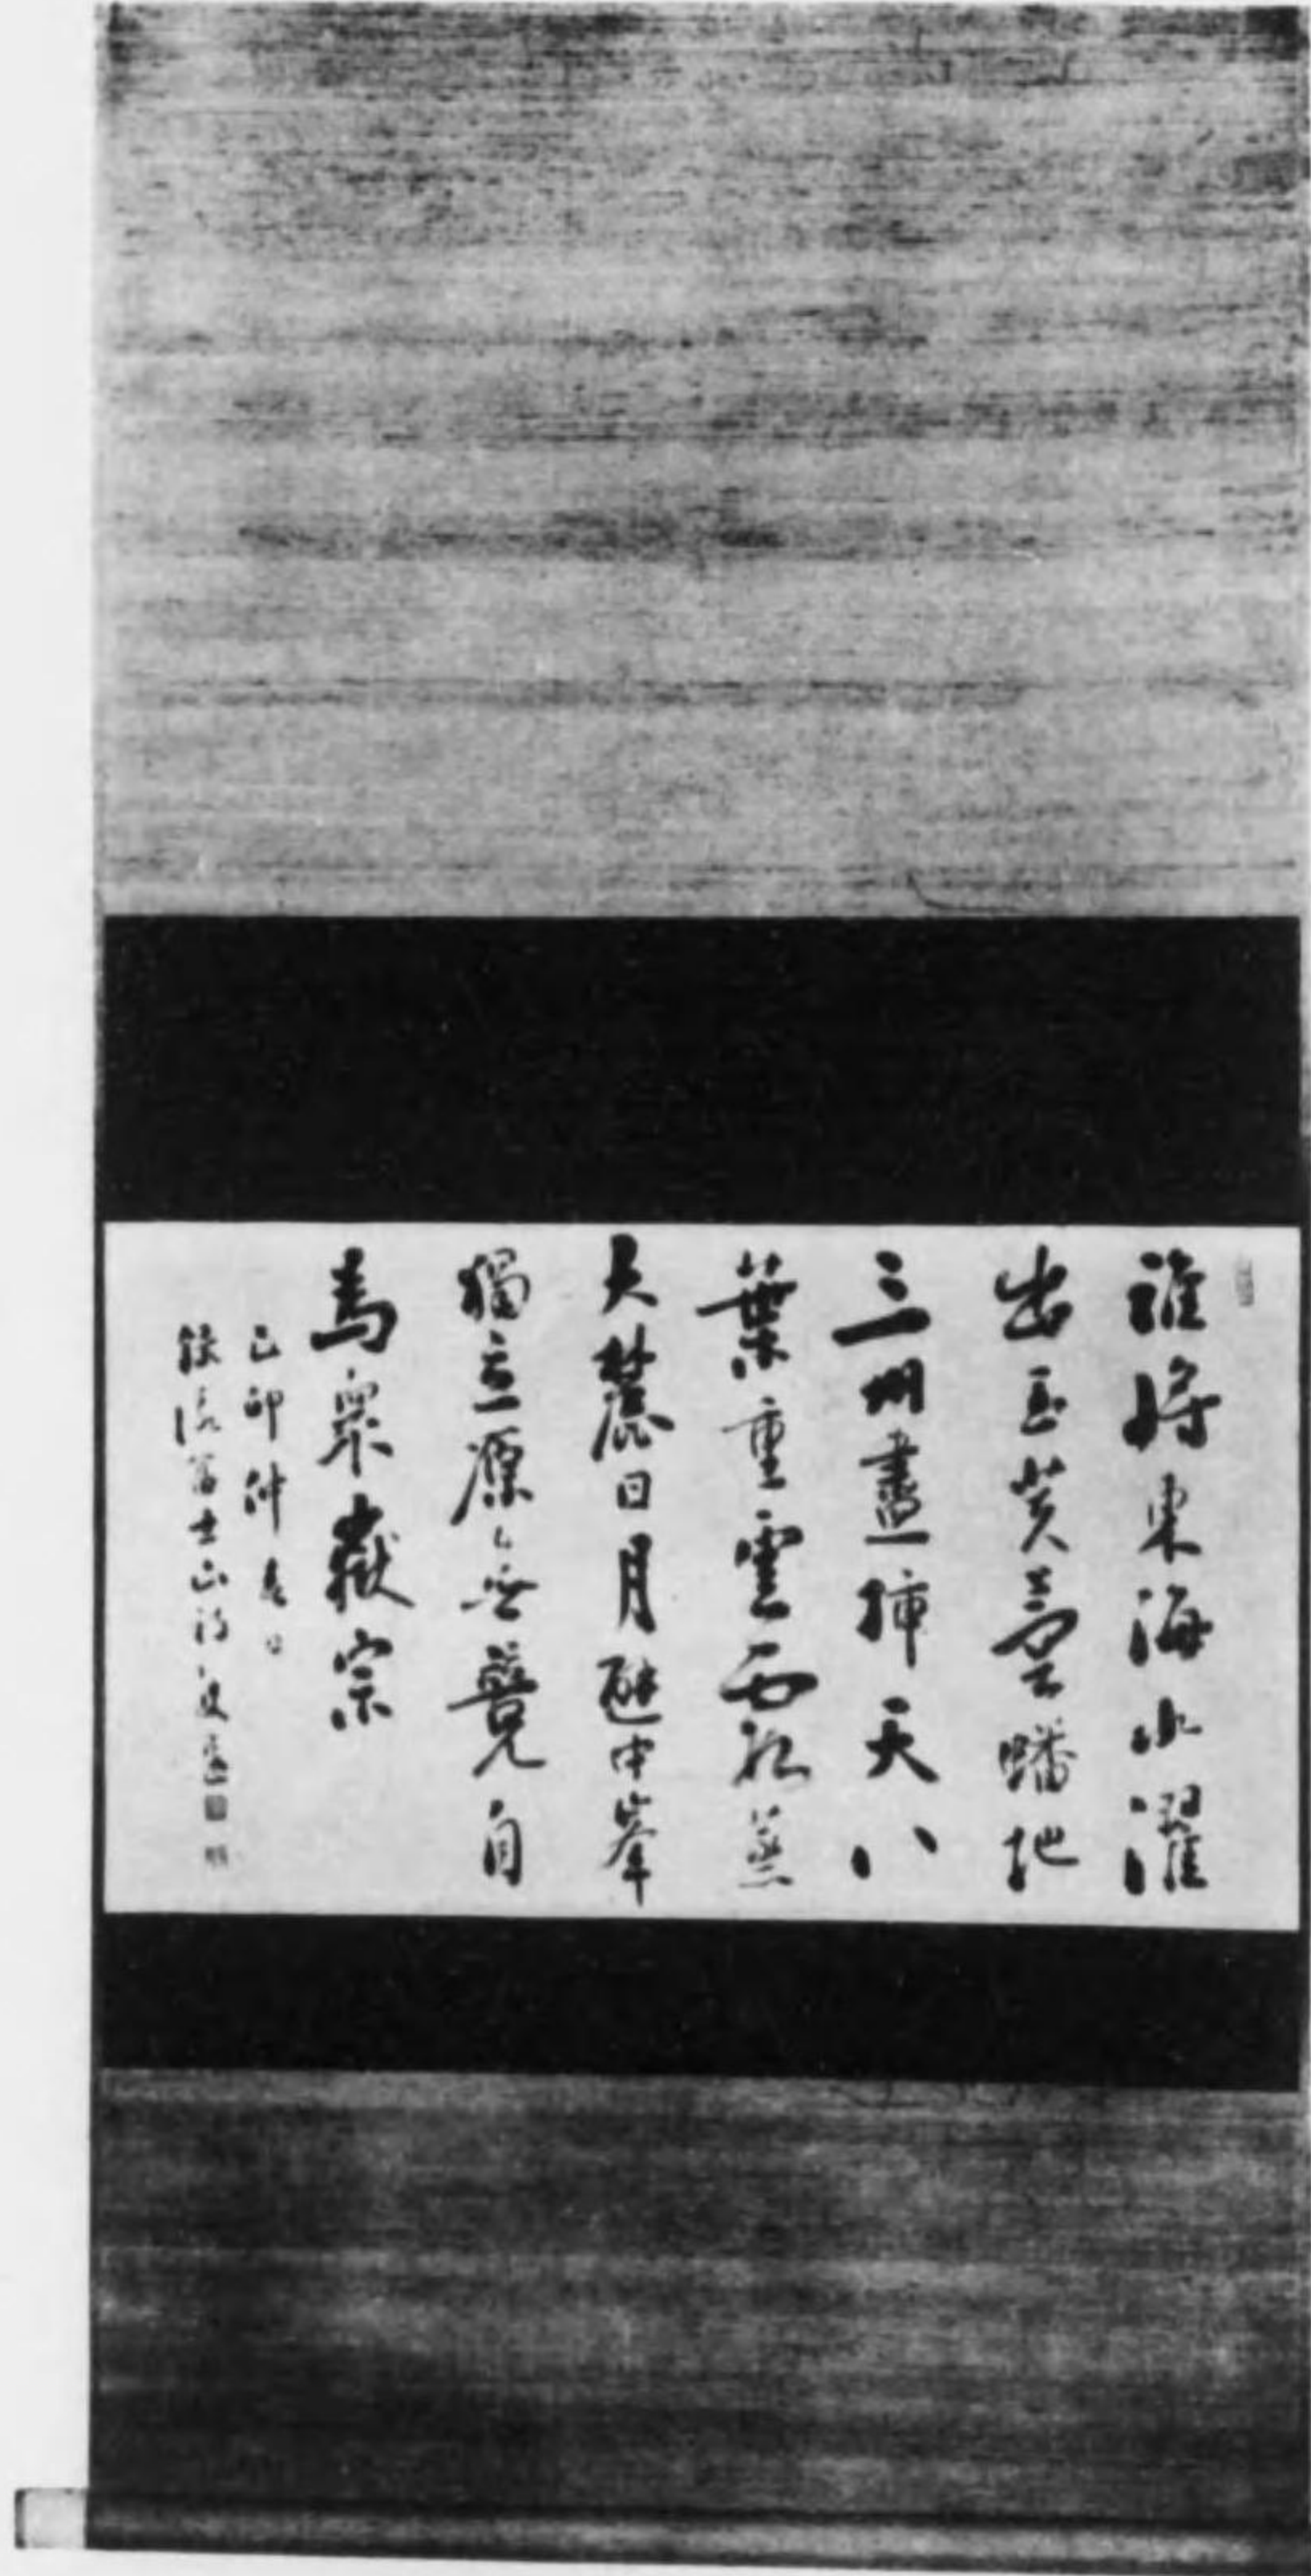 誰將東海水濯
出玉芙蓉蟠地
三州盡挿天八
葉重雲霞蒸
大麓日月避中峯
獨立原無競自
爲衆嶽宗
己卯仲春日
録 富士山詩